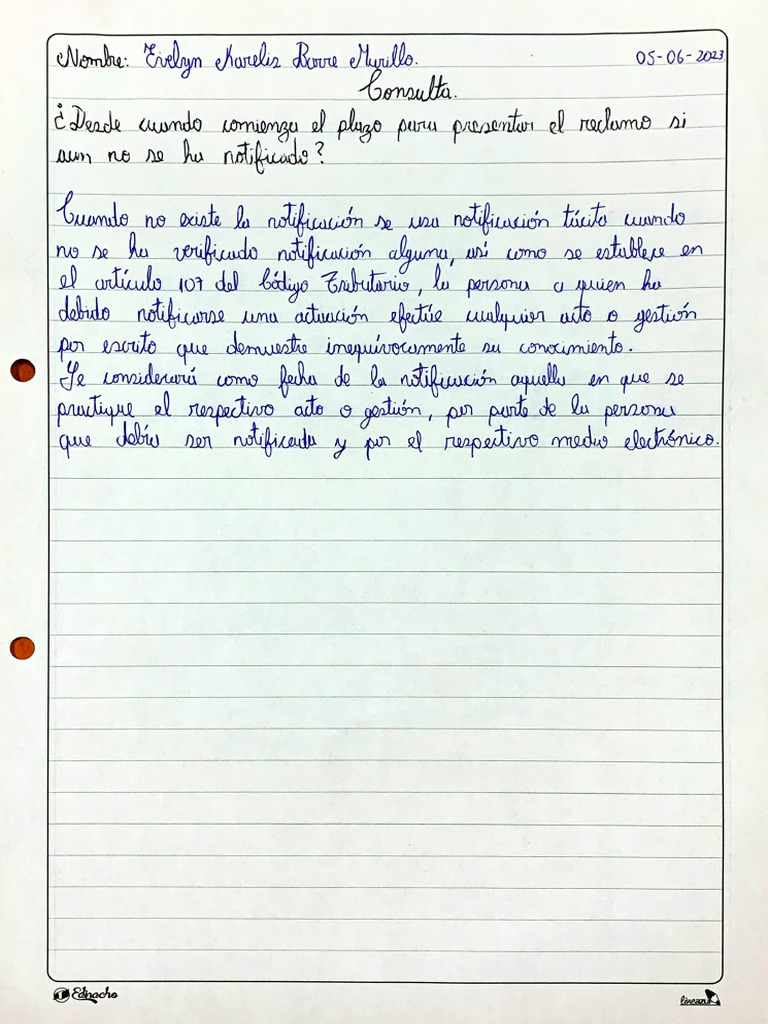 Nombre: Evelyn Karelis Borre Murillo. 05-06-2023
Consulta.
¿Desde cuando comienza el plazo para presentar el reclamo si
aun no se ha notificado?
Cuando no existe la notificación se usa notificación tácita cuando
no se ha verificado notificación alguna, asi como se establece en
el artículo 107 del Código Tributario, la persona a quien ha
debido notificarse una actuación efectúe cualquier acto o gestión
por escrito que demuestre inequívocamente su conocimiento.
Se considerará como fecha de la notificación aquella en que se
practique el respectivo acto o gestión, por parte de la persona
que debía ser notificada y por el respectivo medio electrónico.
Edinacho
lineazul